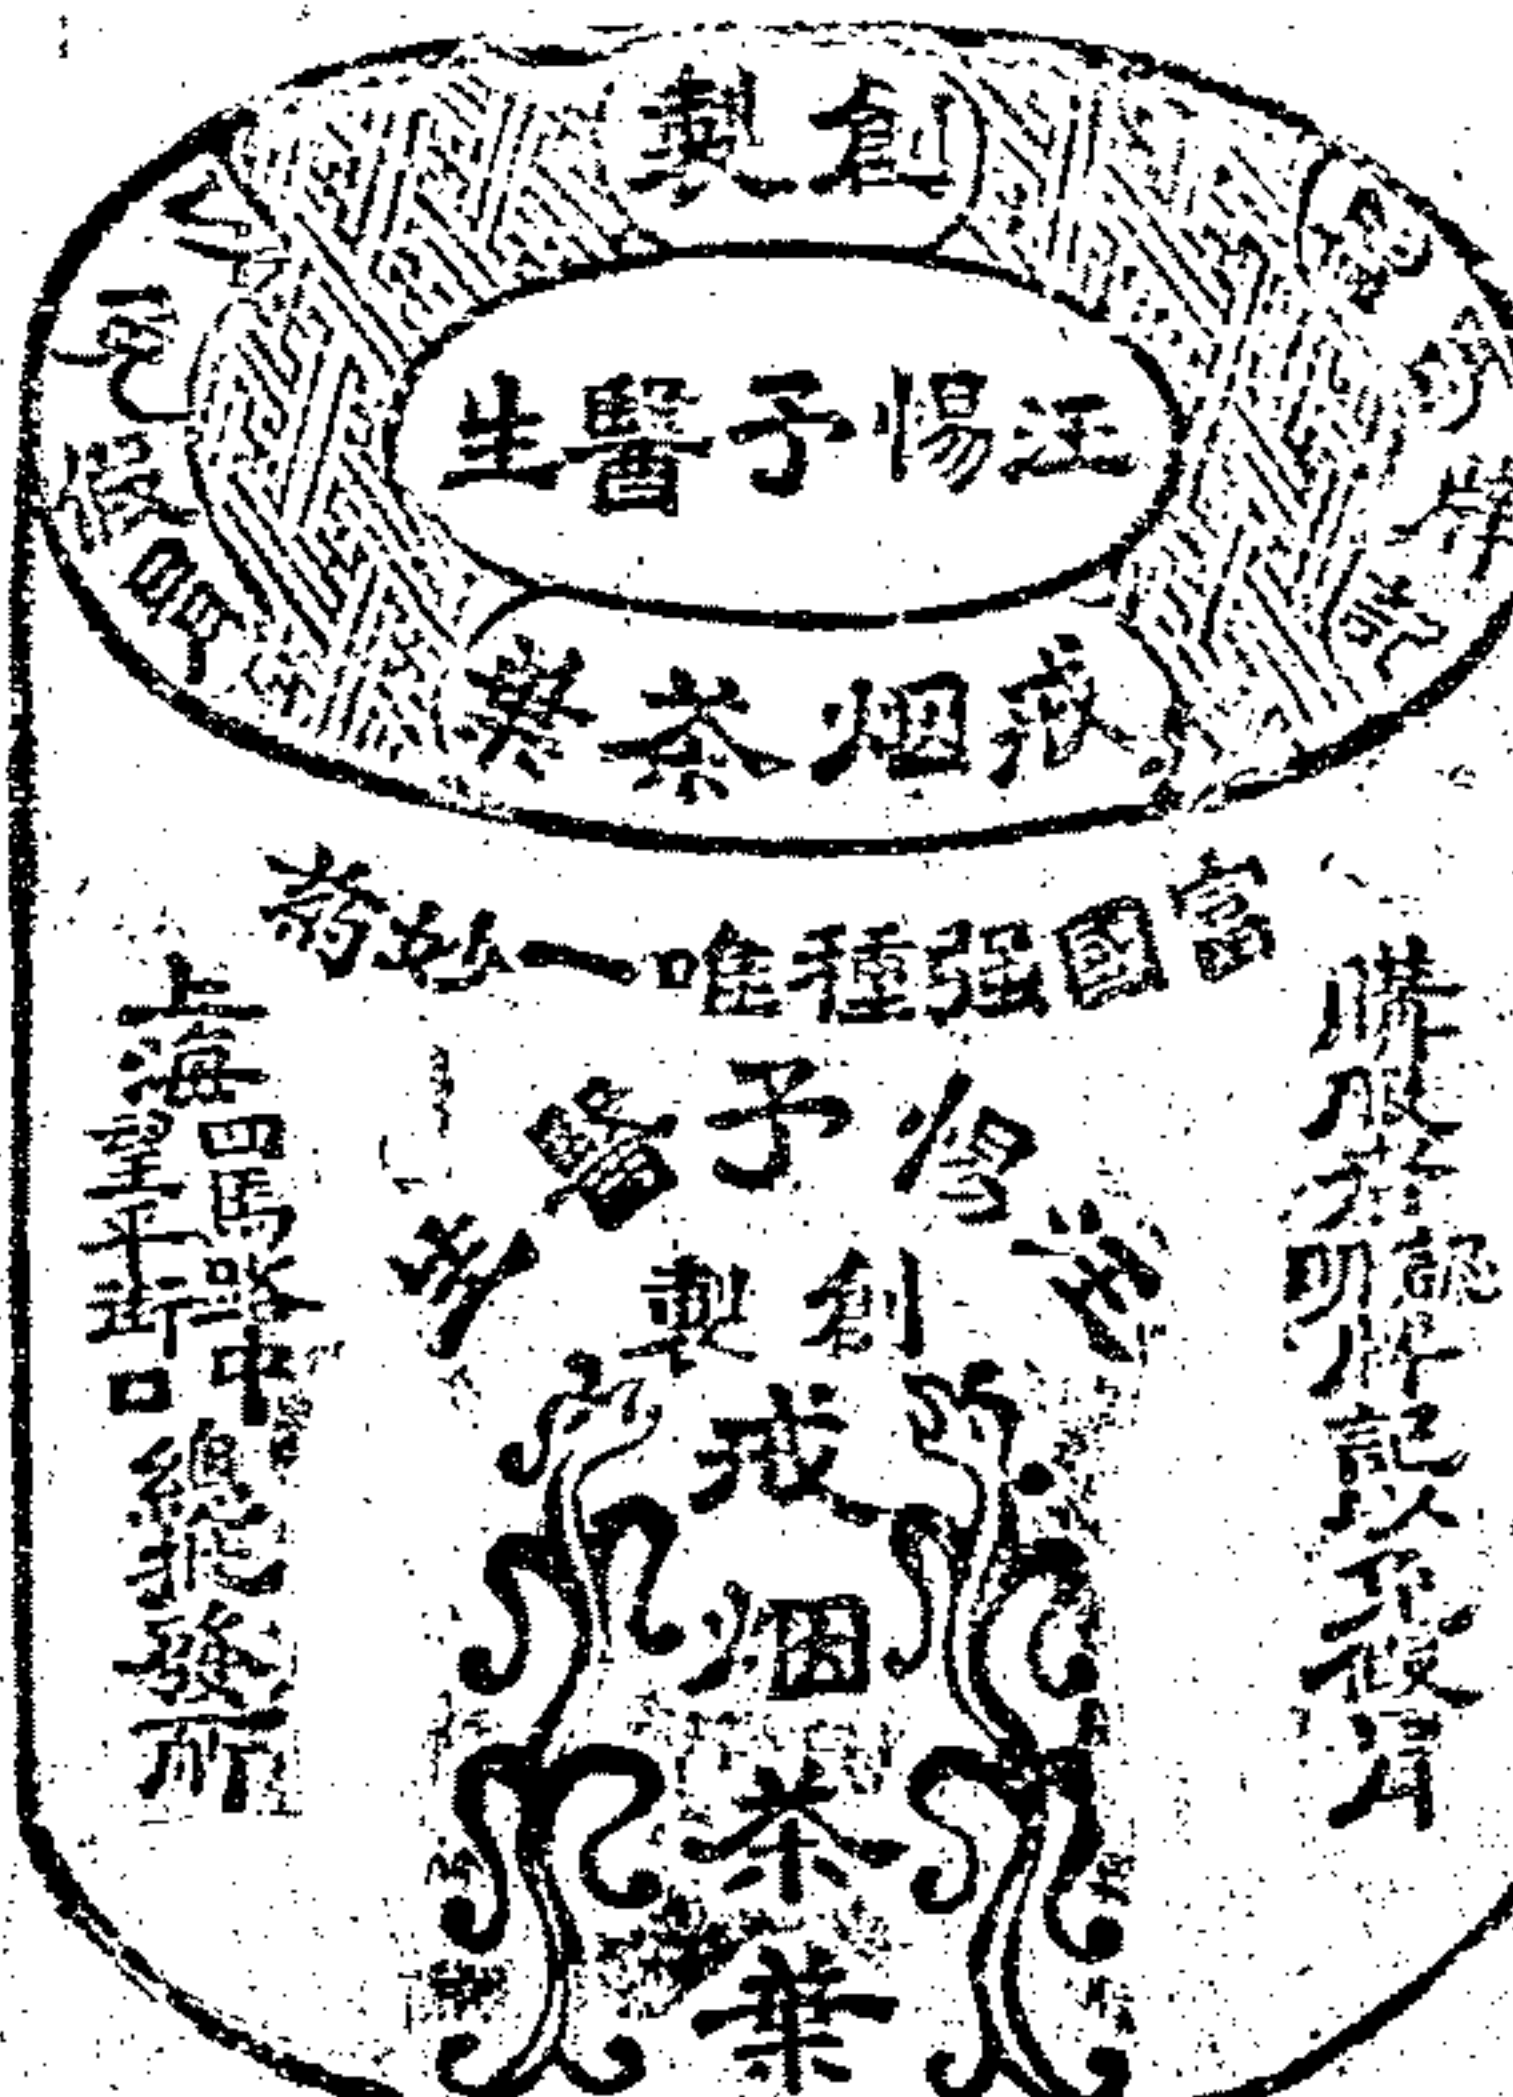 創製
汪惕予醫生
戒烟茶葉
以免假冒
富國强種唯一妙药
購服者認
明牌記以免假冒
汪惕予醫生
創製
戒烟茶葉
上海四馬路中
望平街口總批發所